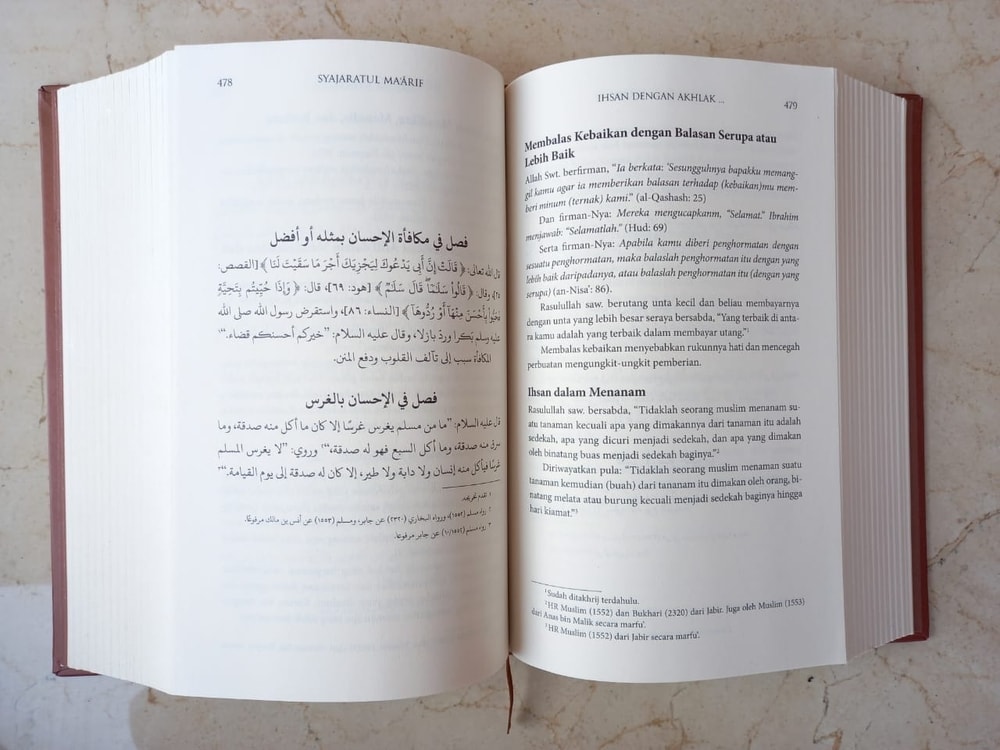 478
SYAJARATUL MA'ÂRIF
فصل في مكافأة الإحسان بمثله أو أفضل
قال الله تعالى: ﴿قَالَتْ إِنَّ أَبِي يَدْعُوكَ لِيَجْزِيَكَ أَجْرَ مَا سَقَيْتَ لَنَا﴾ [القصص:
٢٥]، وقال: ﴿قَالُوا سَلَامًا قَالَ سَلَامٌ﴾ [هود: ٦٩]، قال: ﴿وَإِذَا حُيِّيتُم بِتَحِيَّةٍ
فَحَيُّوا بِأَحْسَنَ مِنْهَا أَوْ رُدُّوهَا﴾ [النساء: ٨٦]، واستقرض رسول الله صلى الله
عليه وسلم بَكرا وردّ بازلا، وقال عليه السلام: ”خيركم أحسنكم قضاء.“
المكافأة سبب إلى تآلف القلوب ودفع المنن.
فصل في الإحسان بالغرس
قال عليه السلام: ”ما من مسلم يغرس غرسًا إلا كان ما أكل منه صدقة، وما
سرق منه صدقة، وما أكل السبع فهو له صدقة،“ وروي: ”لا يغرس المسلم
غرسًا فيأكل منه إنسان ولا دابة ولا طير، إلا كان له صدقة إلى يوم القيامة.“٣
١ تقدم تخريجه.
٢ رواه مسلم (١٥٥٢)، ورواه البخاري (٢٣٢٠) عن جابر، ومسلم (١٥٥٣) عن أنس بن مالك مرفوعًا.
٣ رواه مسلم (١٠/١٥٥٢) عن جابر مرفوعا.
IHSAN DENGAN AKHLAK ...
479
Membalas Kebaikan dengan Balasan Serupa atau
Lebih Baik
Allah Swt. berfirman, "Ia berkata: 'Sesungguhnya bapakku memang-
gil kamu agar ia memberikan balasan terhadap (kebaikan)mu mem-
beri minum (ternak) kami." (al-Qashash: 25)
Dan firman-Nya: Mereka mengucapkanm, "Selamat." Ibrahim
menjawab: "Selamatlah." (Hud: 69)
Serta firman-Nya: Apabila kamu diberi penghormatan dengan
sesuatu penghormatan, maka balaslah penghormatan itu dengan yang
lebih baik daripadanya, atau balaslah penghormatan itu (dengan yang
serupa) (an-Nisa': 86).
Rasulullah saw. berutang unta kecil dan beliau membayarnya
dengan unta yang lebih besar seraya bersabda, "Yang terbaik di anta-
ra kamu adalah yang terbaik dalam membayar utang."¹
Membalas kebaikan menyebabkan rukunnya hati dan mencegah
perbuatan mengungkit-ungkit pemberian.
Ihsan dalam Menanam
Rasulullah saw. bersabda, "Tidaklah seorang muslim menanam su-
atu tanaman kecuali apa yang dimakannya dari tanaman itu adalah
sedekah, apa yang dicuri menjadi sedekah, dan apa yang dimakan
oleh binatang buas menjadi sedekah baginya."²
Diriwayatkan pula: "Tidaklah seorang muslim menaman suatu
tanaman kemudian (buah) dari tananam itu dimakan oleh orang, bi-
natang melata atau burung kecuali menjadi sedekah baginya hingga
hari kiamat."³
¹ Sudah ditakhrij terdahulu.
² HR Muslim (1552) dan Bukhari (2320) dari Jabir. Juga oleh Muslim (1553)
dari Anas bin Malik secara marfu'.
³ HR Muslim (1552) dari Jabir secara marfu'.